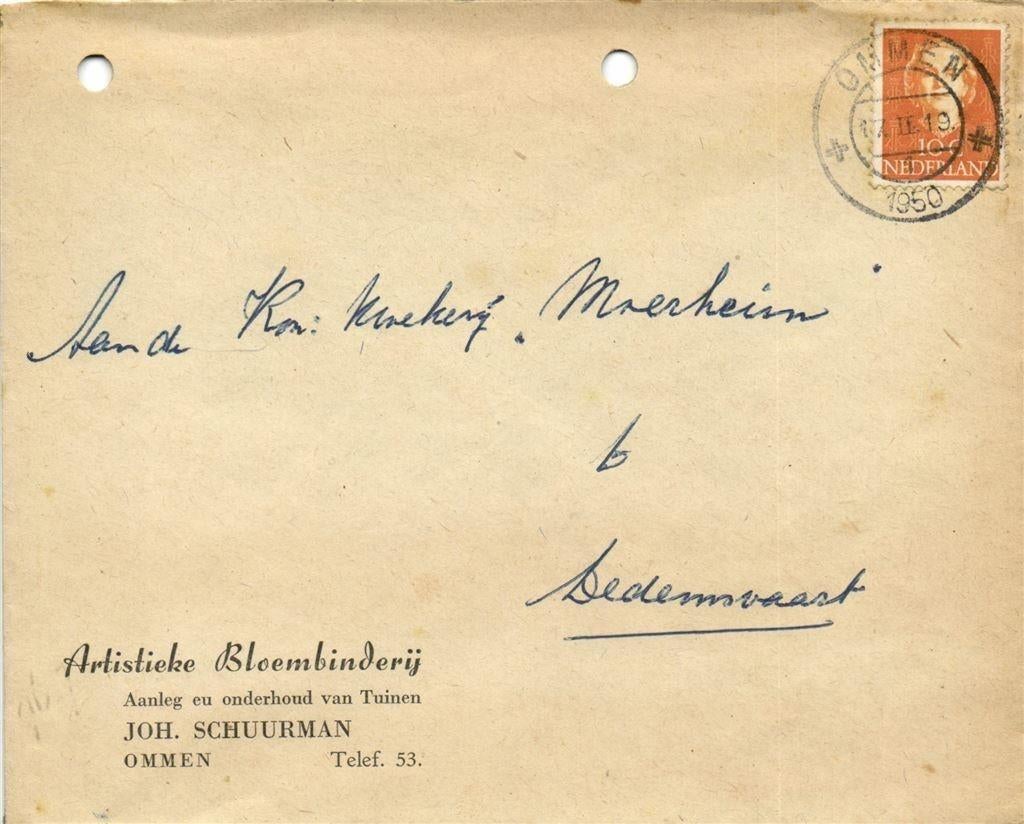 OMMEN
17.II.19.
1950
10 c
NEDERLAND
Aan de Kon: Kwekerij "Moerheim"
te
Dedemsvaart
Artistieke Bloembinderij
Aanleg eu onderhoud van Tuinen
JOH. SCHUURMAN
OMMEN Telef. 53.